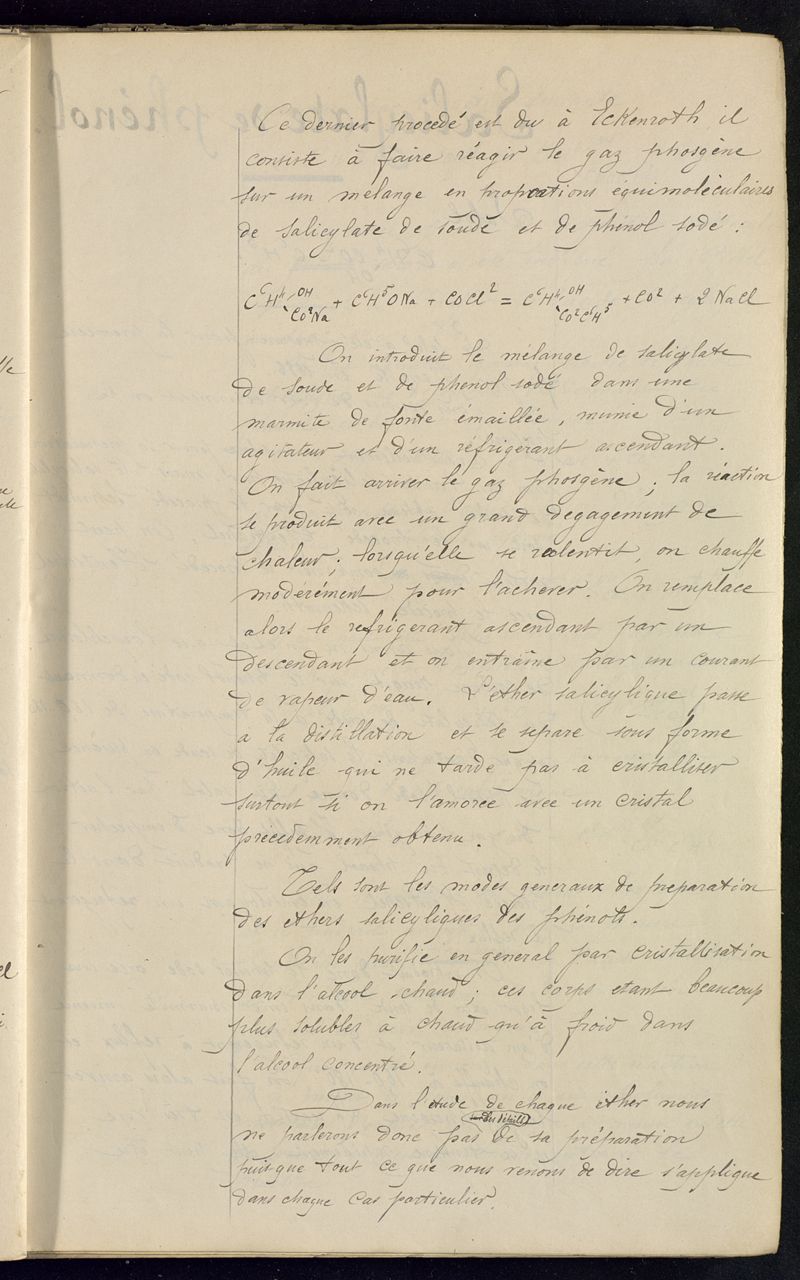 Ce dernier procedé est du à Eckenroth il
consiste à faire réagir le gaz phosgène
sur un mélange en proportions équimoléculaires
de salicylate de soude et de phénol sodé :
C⁶H⁴⟨OH CO²Na + C⁶H⁵ONa + COCl² = C⁶H⁴⟨OH CO²C⁶H⁵ + CO² + 2 NaCl
On introduit le mélange de salicylate
de soude et de phenol sodé dans une
marmite de fonte émaillée, munie d'un
agitateur et d'un réfrigérant ascendant.
On fait arriver le gaz phosgène ; la réaction
se produit avec un grand degagement de
chaleur ; lorsqu'elle se ralentit, on chauffe
modérément pour l'achever. On remplace
alors le refrigerant ascendant par un
descendant et on entraîne par un courant
de vapeur d'eau. L'éther salicylique passe
a la distillation et se separe sous forme
d'huile qui ne tarde pas à cristalliser
surtout si on l'amorce avec un cristal
précédemment obtenu.
Tels sont les modes generaux de preparation
des ethers salicyliques des phénols.
On les purifie en general par cristallisation
dans l'alcool chaud ; ces corps etant beaucoup
plus solubles à chaud qu'à froid dans
l'alcool concentré.
Dans l'etude de chaque éther nous
des détails
ne parlerons donc pas de sa préparation
puisque tout ce que nous venons de dire s'applique
dans chaque cas particulier.